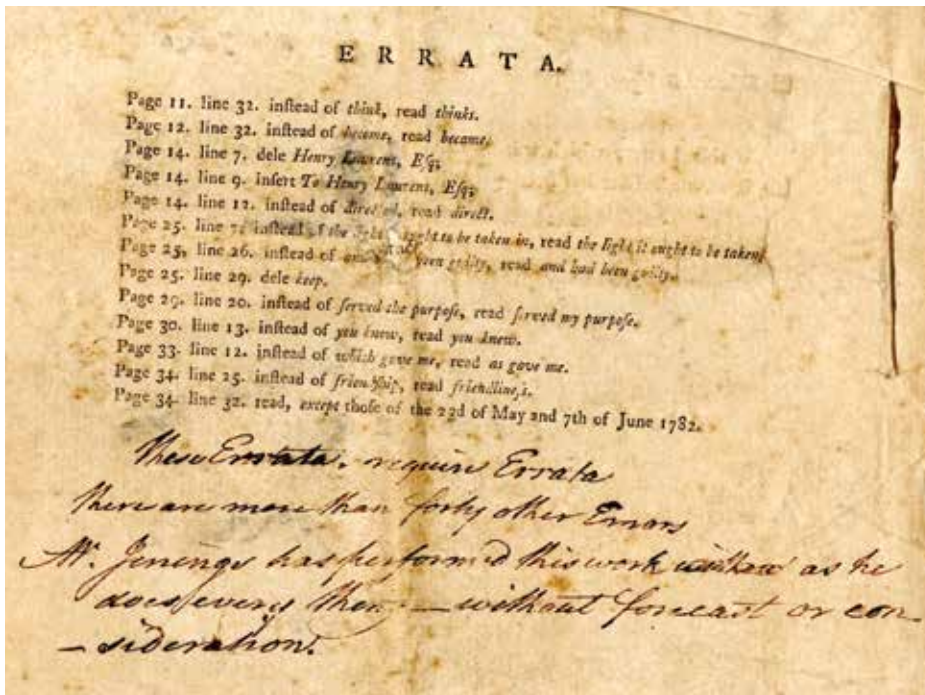 ERRATA.
Page 11. line 32. inſtead of think, read thinks.
Page 12. line 32. inſtead of become, read became.
Page 14. line 7. dele Henry Laurens, Eſq;
Page 14. line 9. inſert To Henry Laurens, Eſq;
Page 14. line 12. inſtead of directed, read direct.
Page 25. line inſtead of the light ought to be taken in, read the light it ought to be taken
Page 25, line 26. inſtead of been guilty, read and had been guilty.
Page 25. line 29. dele keep.
Page 29. line 20. inſtead of ſerved the purpoſe, read ſerved my purpoſe.
Page 30. line 13. inſtead of you knew, read you knew.
Page 33. line 12. inſtead of which gave me, read as gave me.
Page 34. line 25. inſtead of friendſhip, read friendlineſs.
Page 34. line 32. read, except thoſe of the 22d of May and 7th of June 1782.
these Errata. require Errata
there are more than forty other Errors
Mr. Jenings has perform'd this work as he
does every thing — without forecast or con-
-sideration.